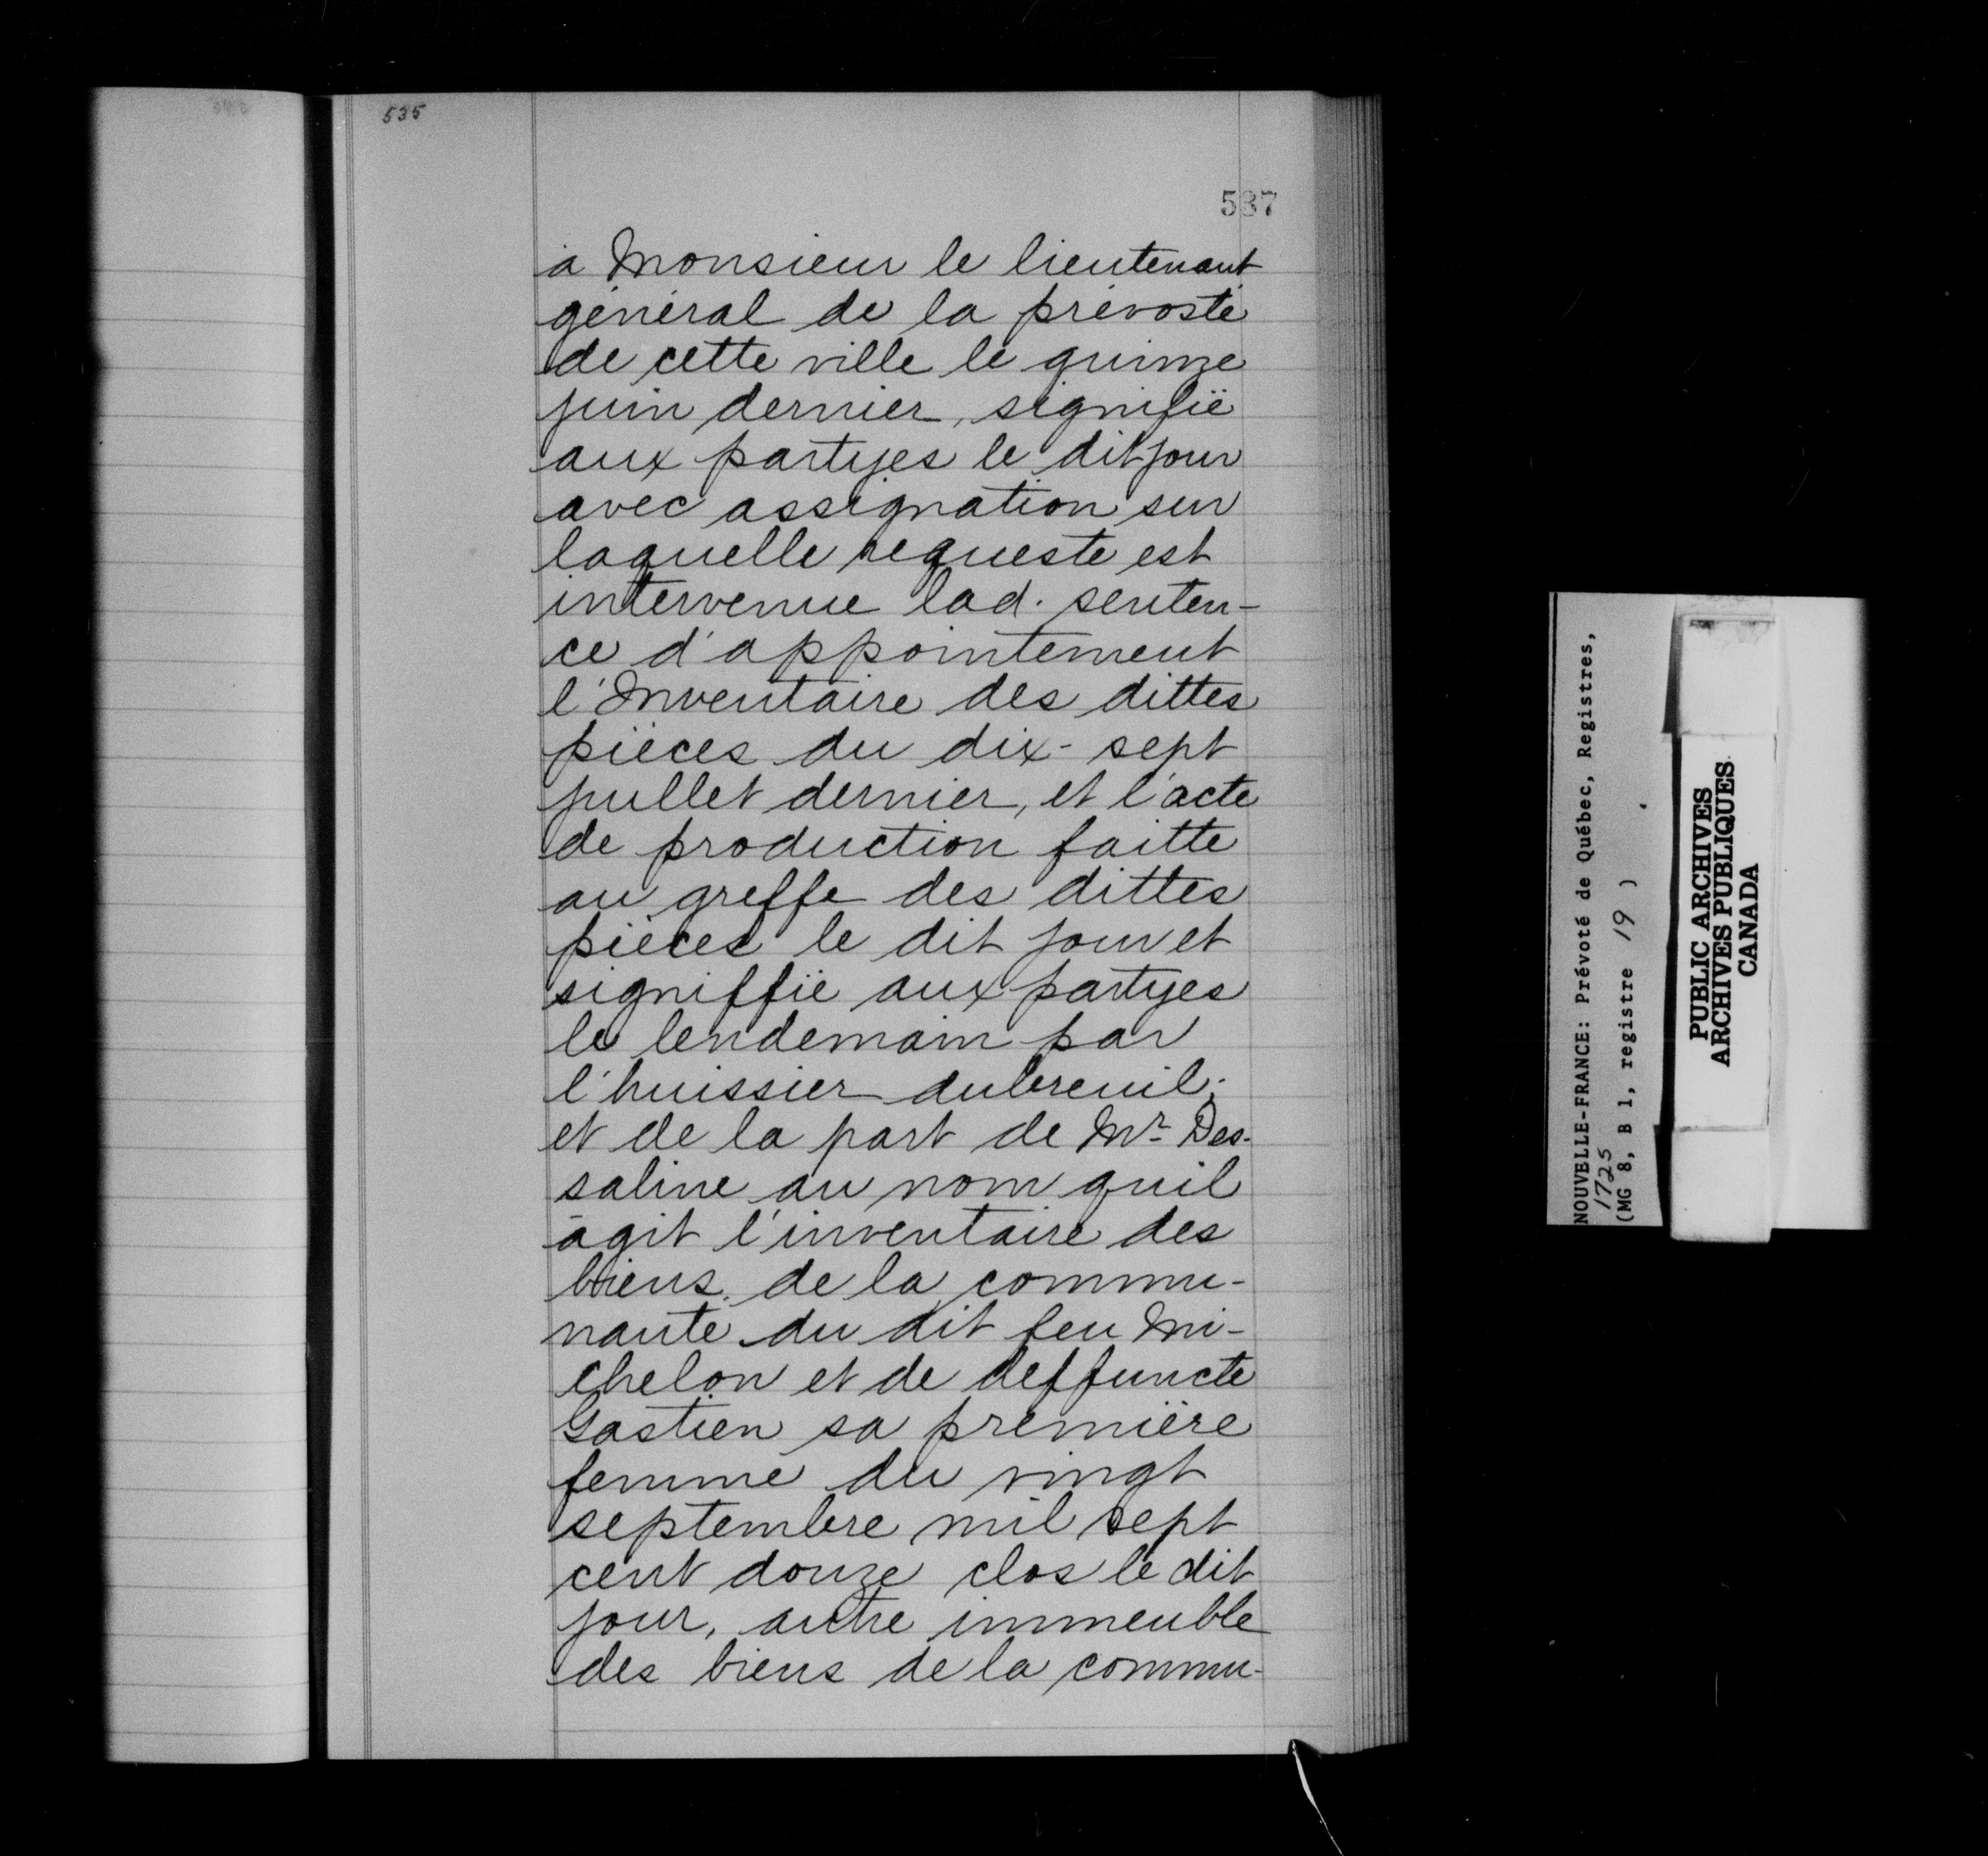 535
537
à Monsieur le lieutenant
général de la prévosté
de cette ville le quinze
juin dernier, signifié
aux partyes le dit jour
avec assignation sur
laquelle requeste est
intervenue lad. senten-
ce d'appointement
l'Inventaire des dittes
pièces du dix-sept
juillet dernier, et l'acte
de production faitte
au greffe des dittes
pièces le dit jour et
signiffié aux partyes
le lendemain par
l'huissier dubreuil;
et de la part de Mr Des-
saline au nom quil
agit l'inventaire des
biens de la commu-
nauté du dit feu Mi-
chelon et de deffuncte
Gastien sa première
femme du vingt
septembre mil sept
cent douze clos le dit
jour, autre immeuble
des biens de la commu-
NOUVELLE-FRANCE: Prévoté de Québec, Registres,
1725
(MG 8, B 1, registre 19 )
PUBLIC ARCHIVES
ARCHIVES PUBLIQUES
CANADA